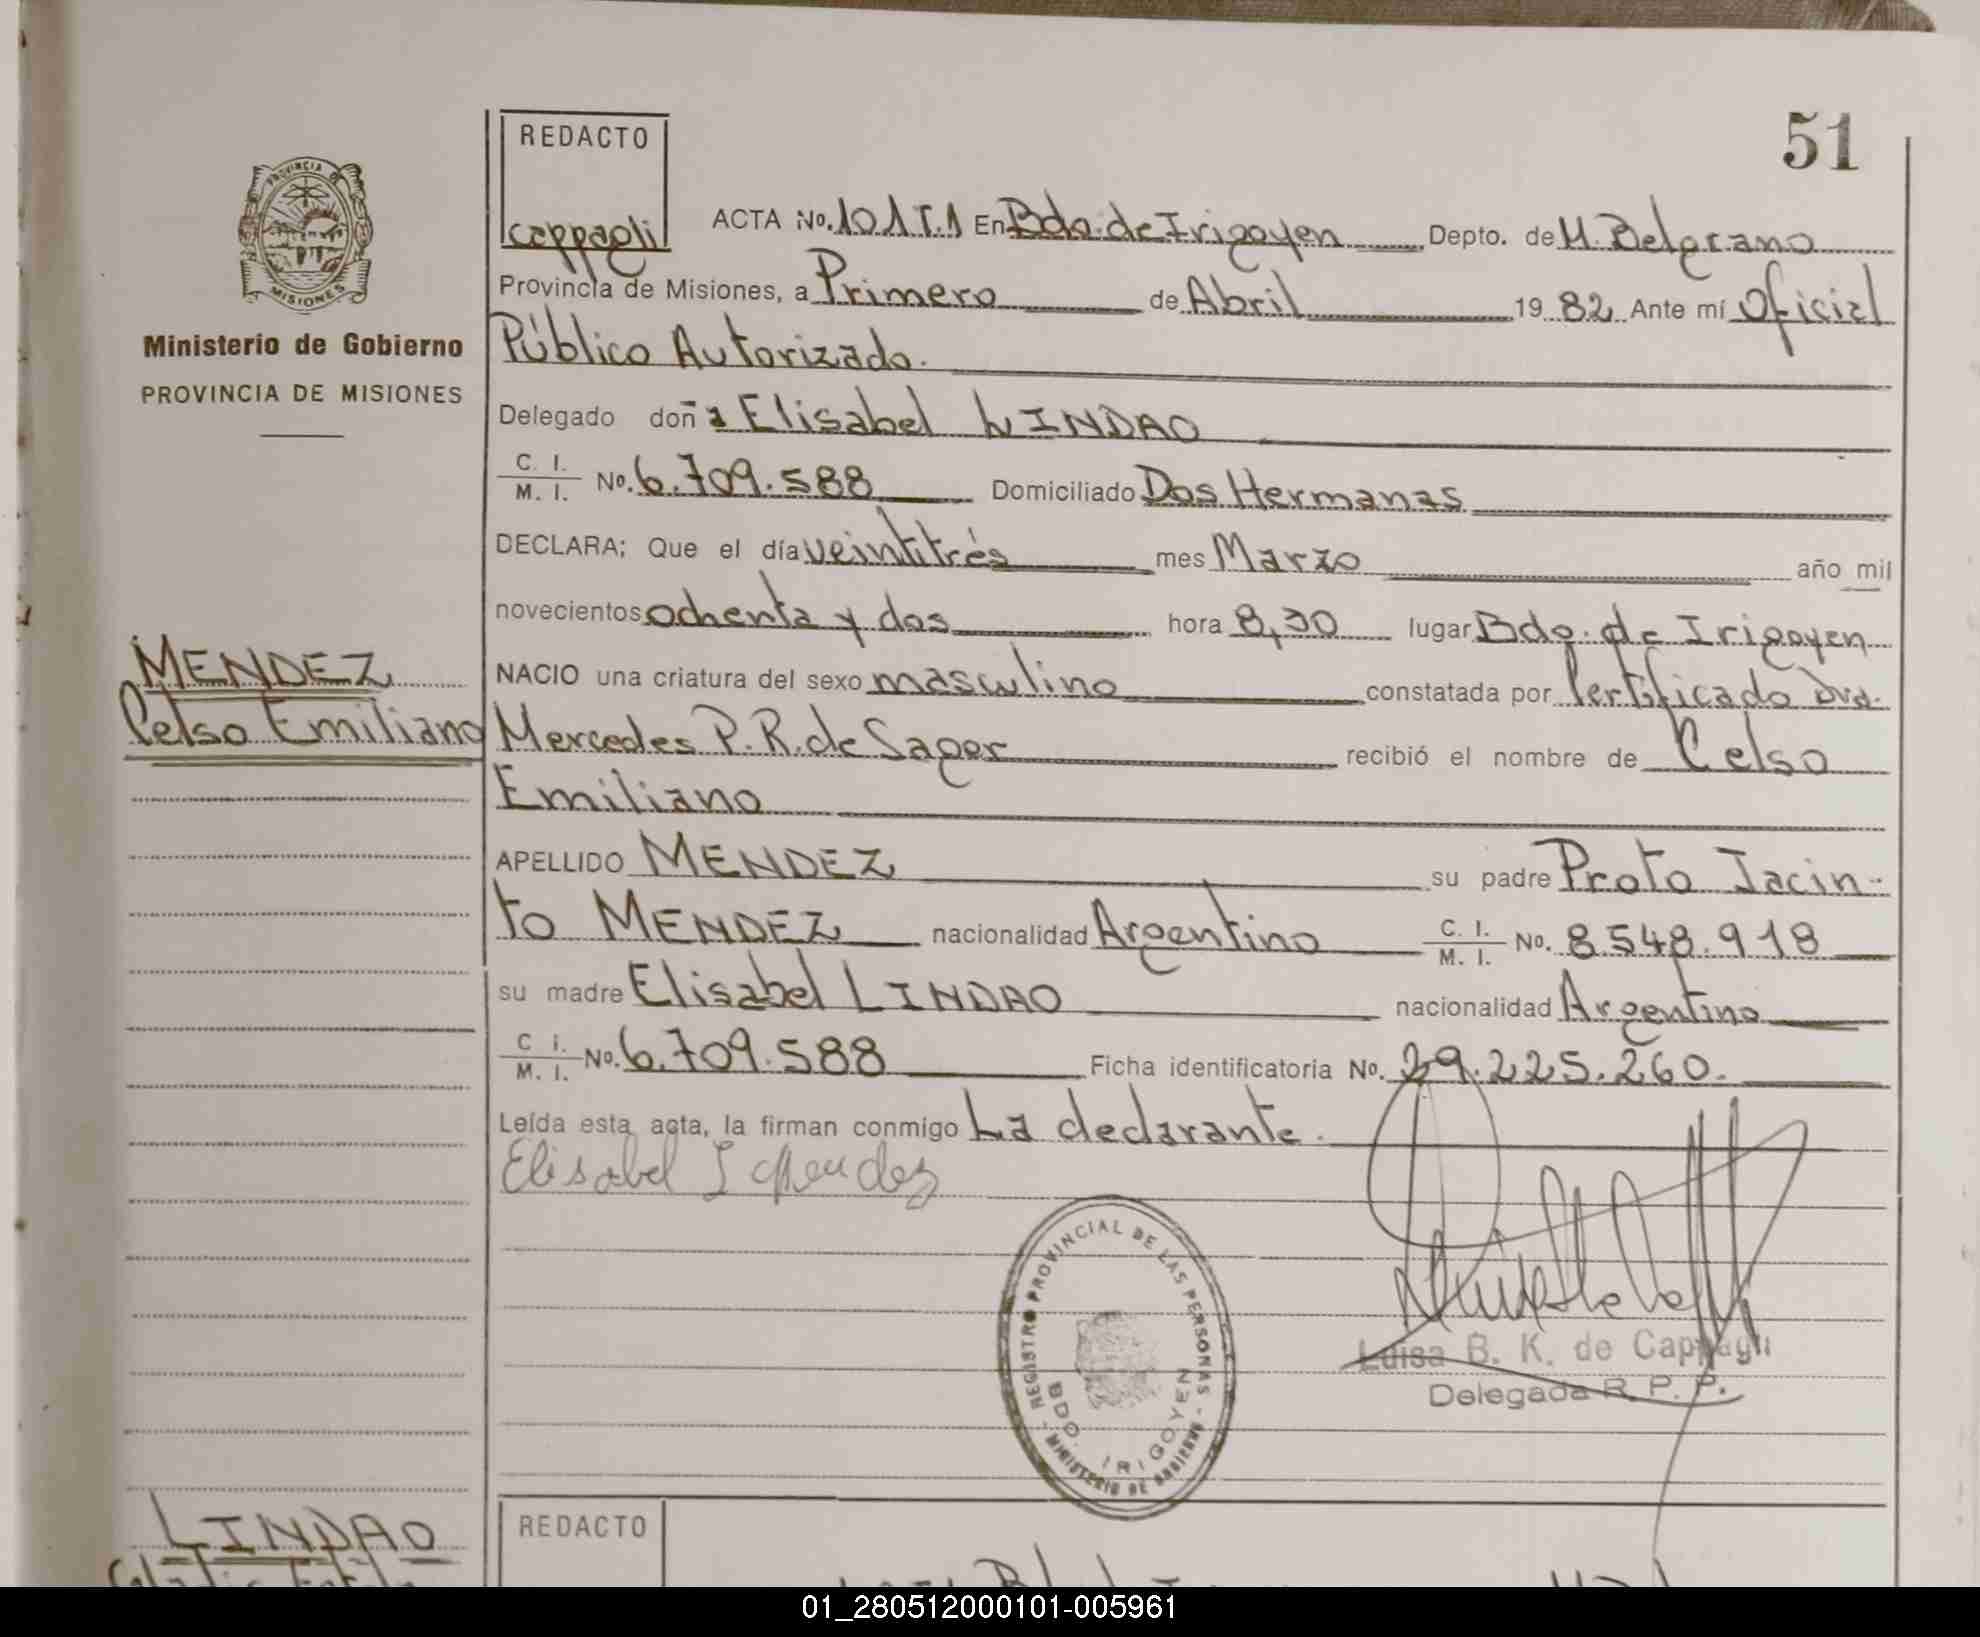 51
REDACTO
cappagli
PROVINCIA DE
MISIONES
Ministerio de Gobierno
PROVINCIA DE MISIONES
ACTA No. 101 T.1 En Bdo. de Irigoyen Depto. de M. Belgrano
Provincia de Misiones, a Primero de Abril 19 82 Ante mí Oficial
Público Autorizado.
Delegado doña Elisabel LINDAO
C. I. / M. I. No. 6.709.588 Domiciliado Dos Hermanas
DECLARA; Que el día veintitrés mes Marzo año mil
novecientos ochenta y dos hora 8,30 lugar Bdo. de Irigoyen
NACIO una criatura del sexo masculino constatada por Certificado Dra.
Mercedes P. R. de Sager recibió el nombre de Celso
Emiliano
MENDEZ
Celso Emiliano
APELLIDO MENDEZ su padre Proto Jacin-
to MENDEZ nacionalidad Argentino C. I. / M. I. No. 8.548.918
su madre Elisabel LINDAO nacionalidad Argentino
C I. / M. I. No. 6.709.588 Ficha identificatoria No. 29.225.260.
Leída esta acta, la firman conmigo La declarante.
Elisabel L de Mendez
REGISTRO PROVINCIAL DE LAS PERSONAS
BDO. IRIGOYEN
MINISTERIO DE GOBIERNO
Luisa B. K. de Cappagli
Delegada R. P. P.
LINDAO
REDACTO
01_280512000101-005961